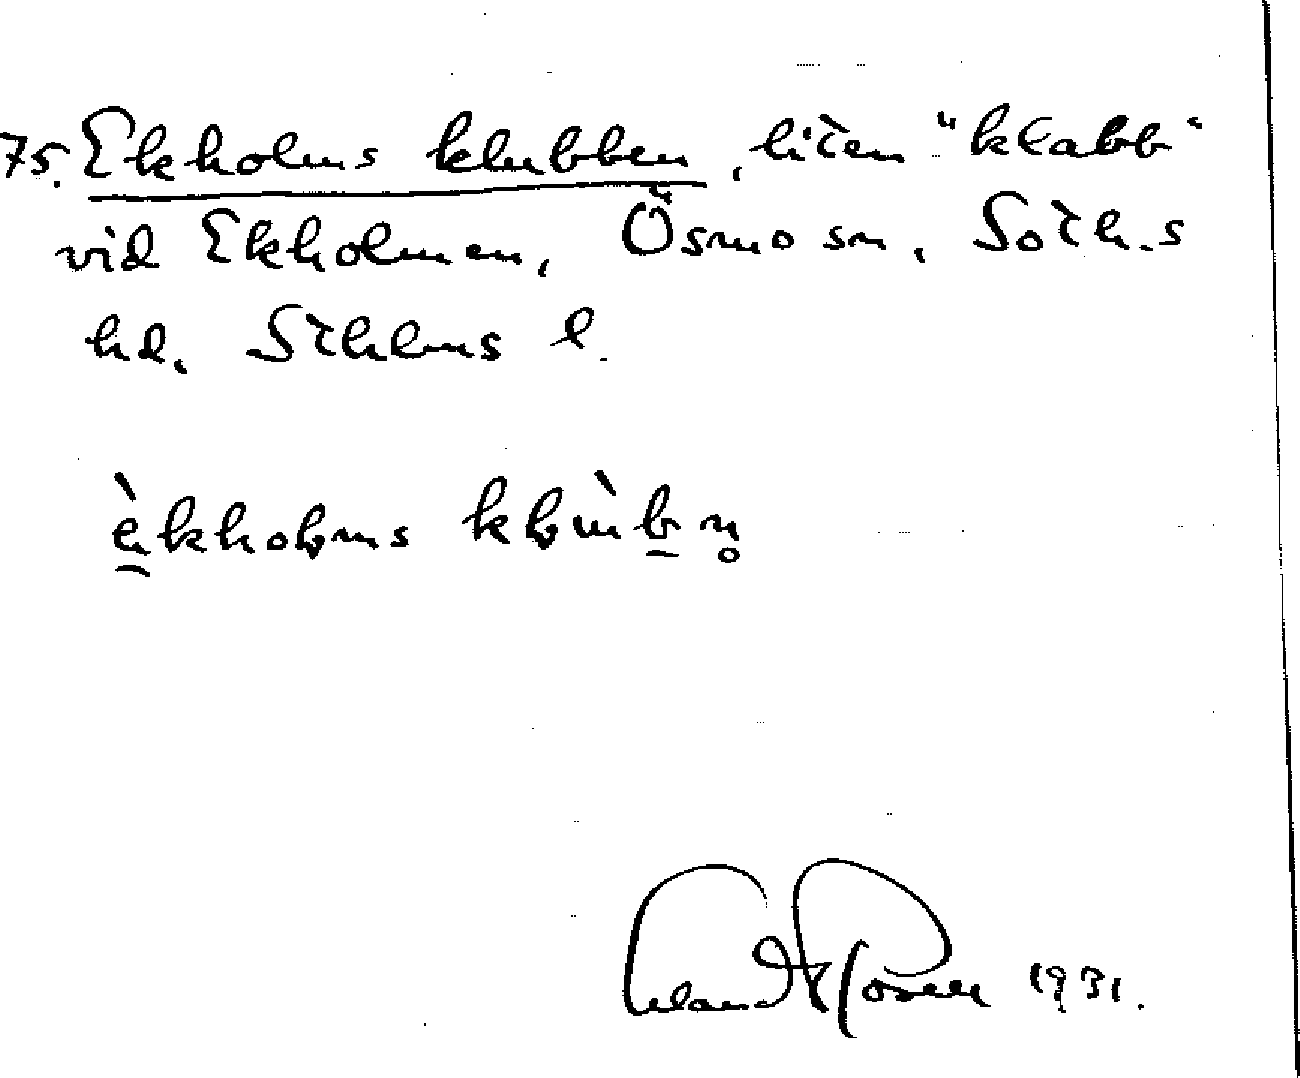 75. Ekholms klubben, liten "klabb"
vid Ekholmen, Ösmo sn, Soth.s
hd. Sthlms l.
èkholms klùbn̥
1931.